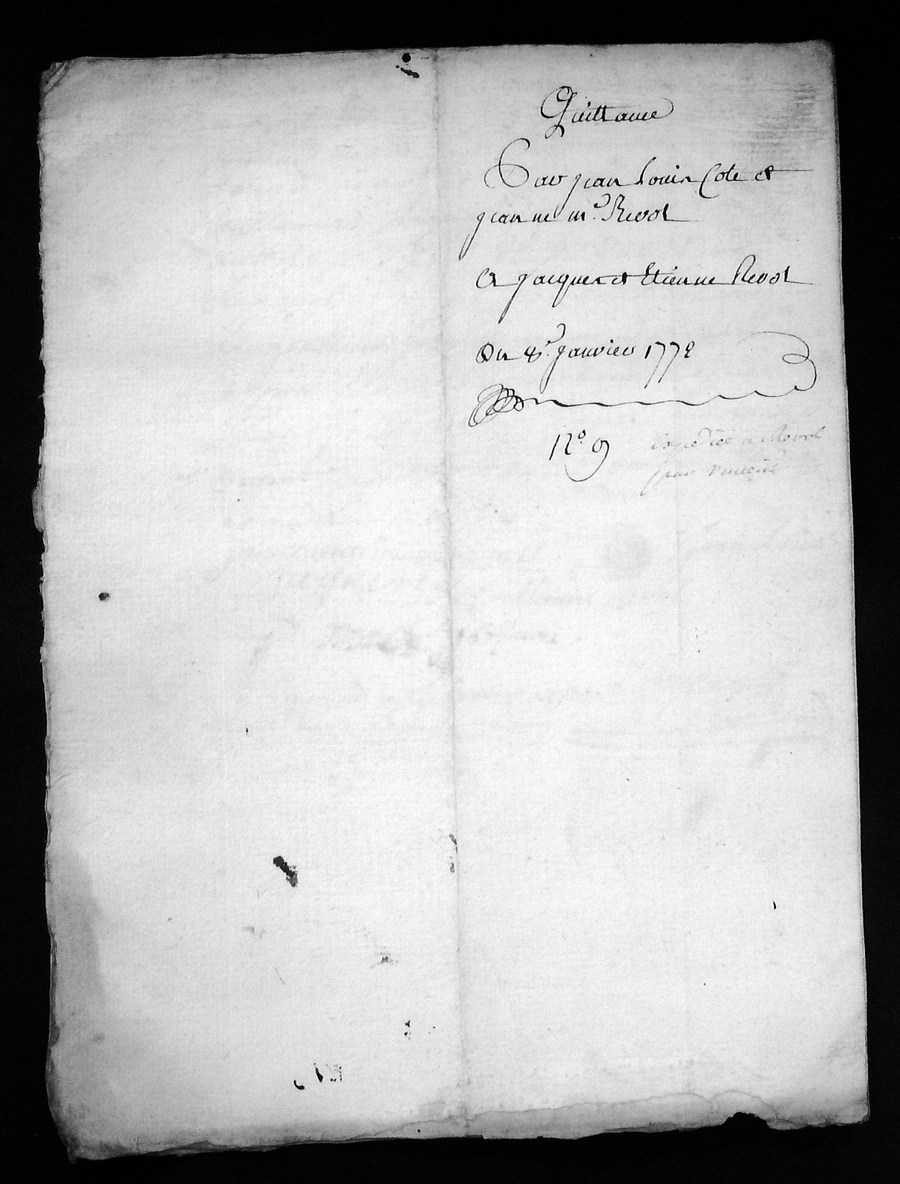 Quittance
Par jean Louis Cote et
jeanne m.e Revol
A jacques et Etienne Revol
Du 8.e janvier 1772
N.o 9
Expediée a Revol
pour